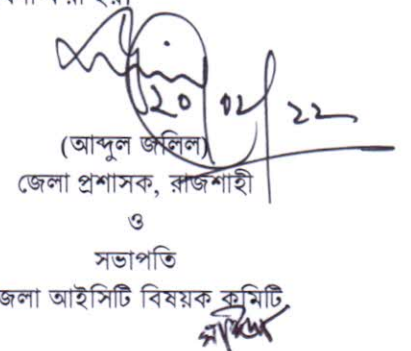 20 02 22
(আব্দুল জলিল)
জেলা প্রশাসক, রাজশাহী
ও
সভাপতি
জেলা আইসিটি বিষয়ক কমিটি